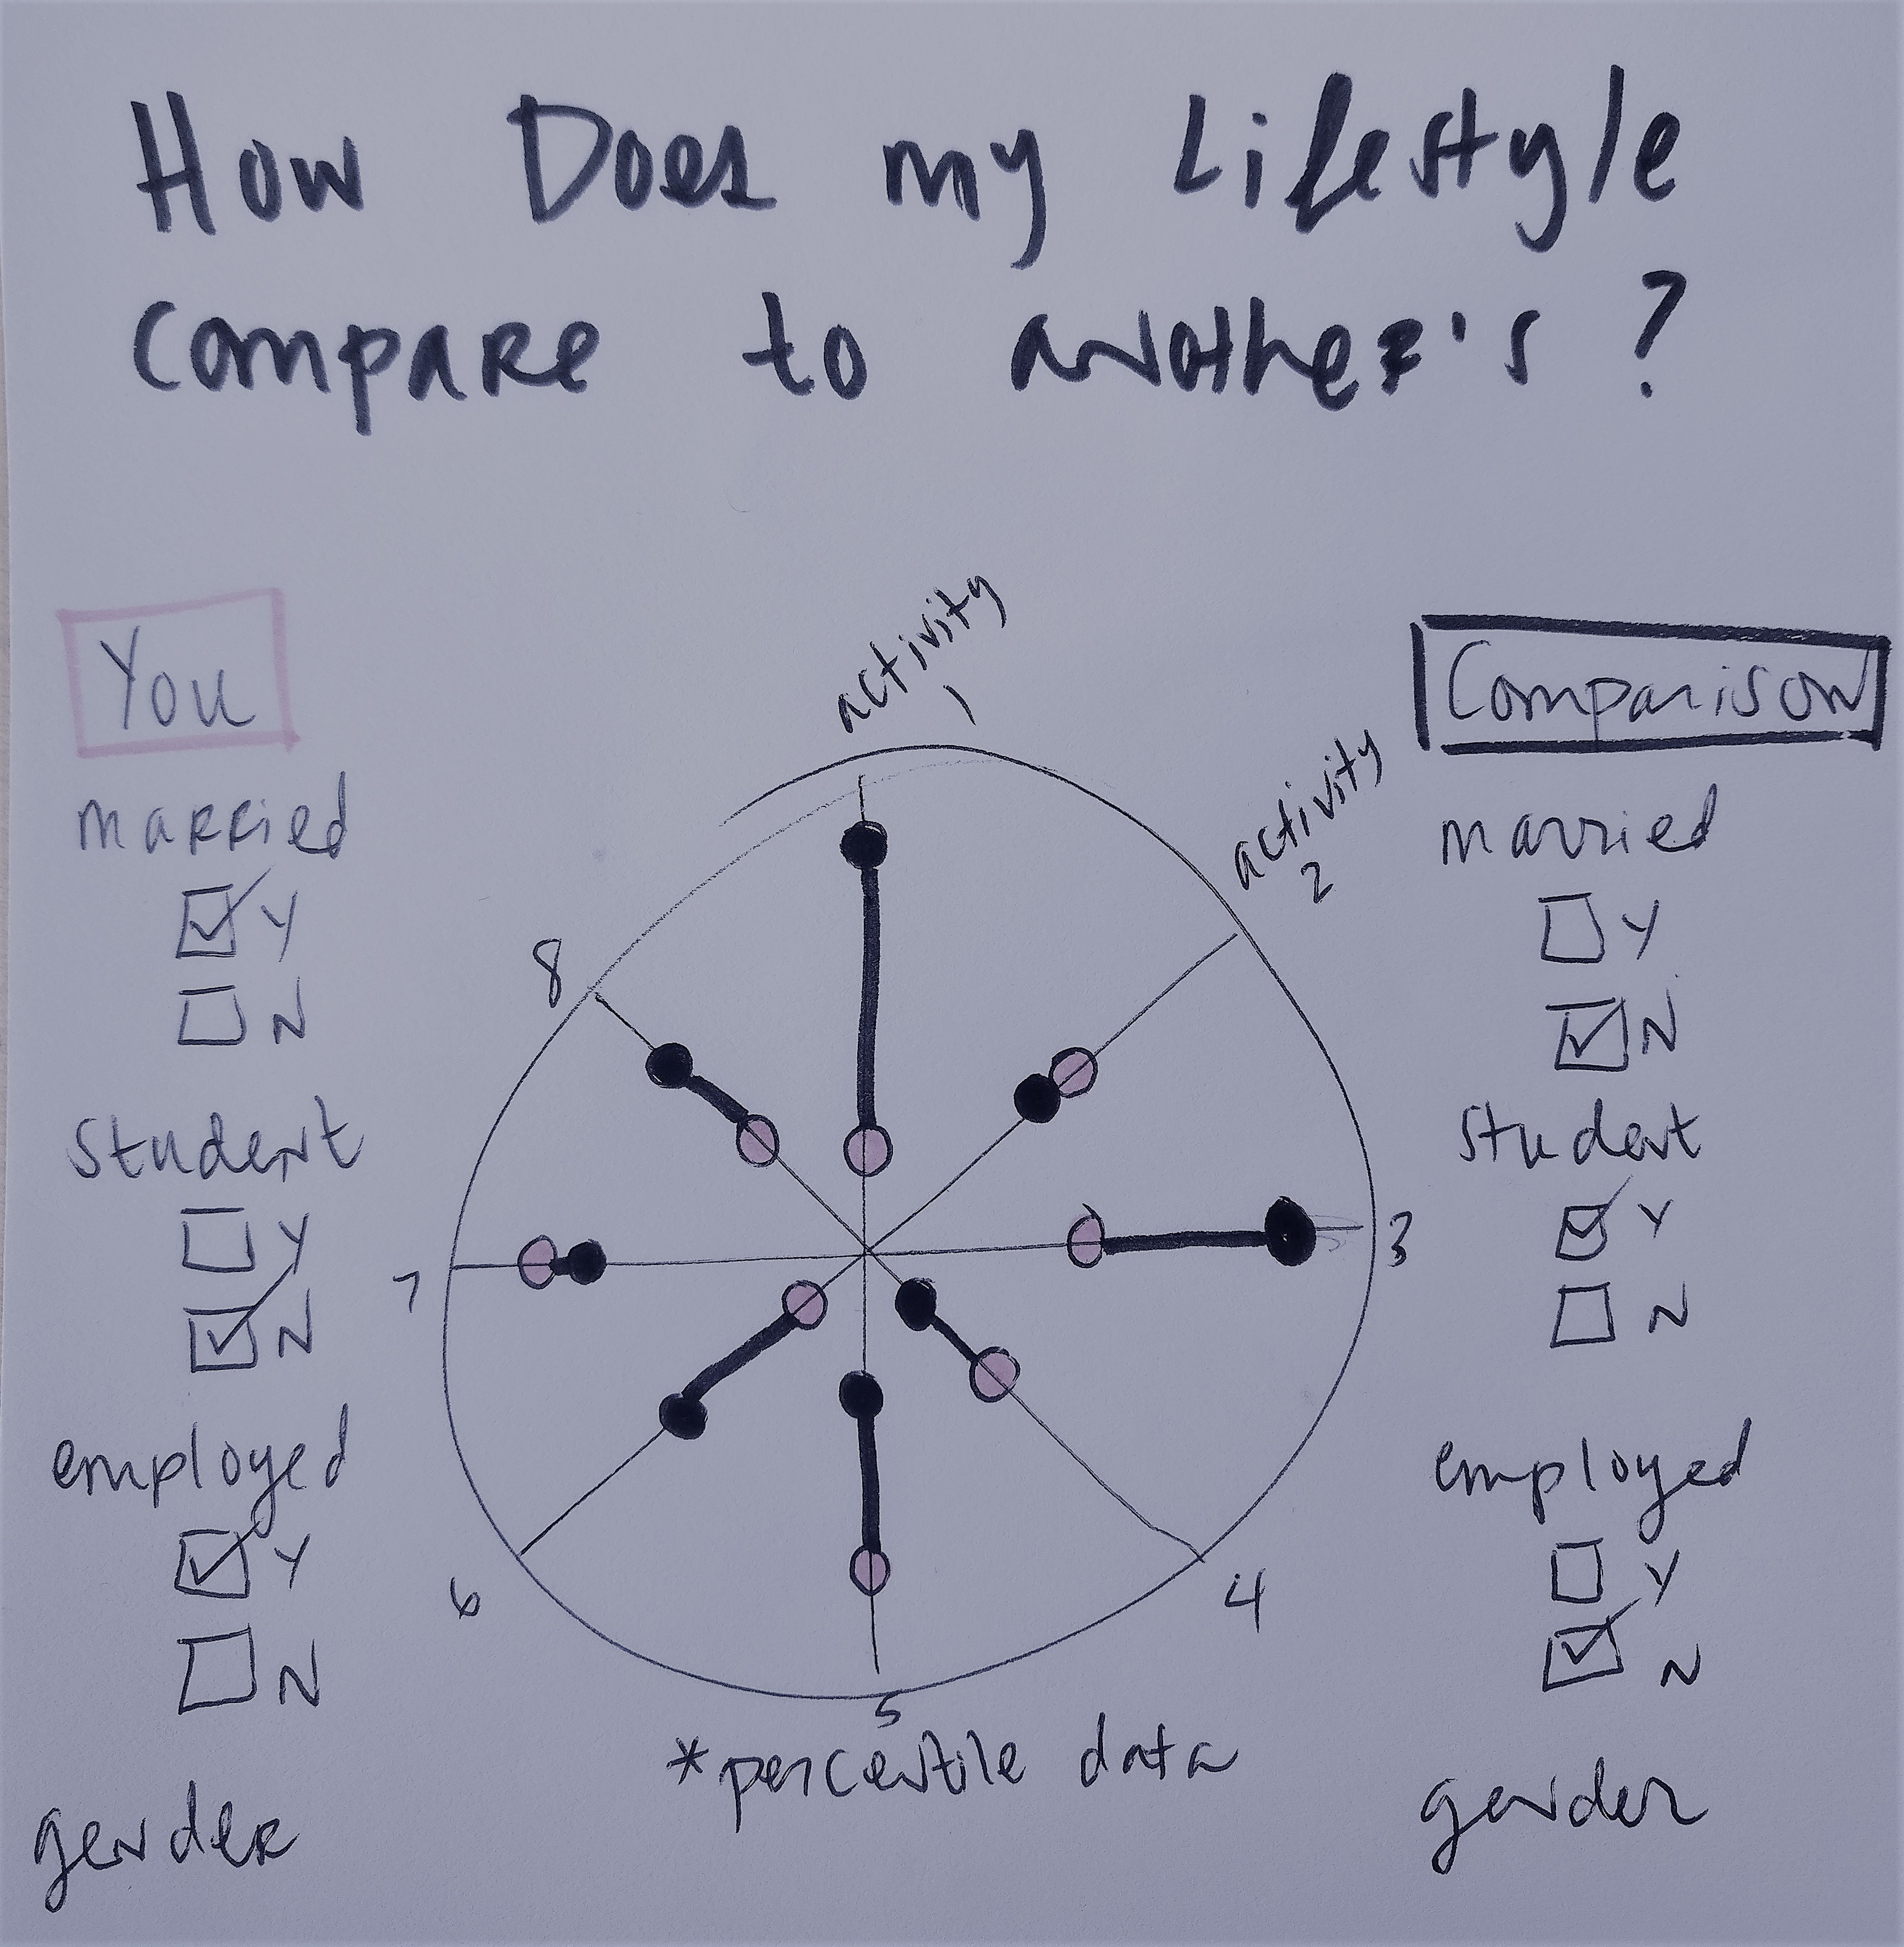 How Does my Lifestyle
Compare to another's?
You
married
Y
N
Student
Y
N
employed
Y
N
gender
activity
1
activity
2
3
4
5
6
7
8
*percentile data
Comparison
married
Y
N
student
Y
N
employed
Y
N
gender